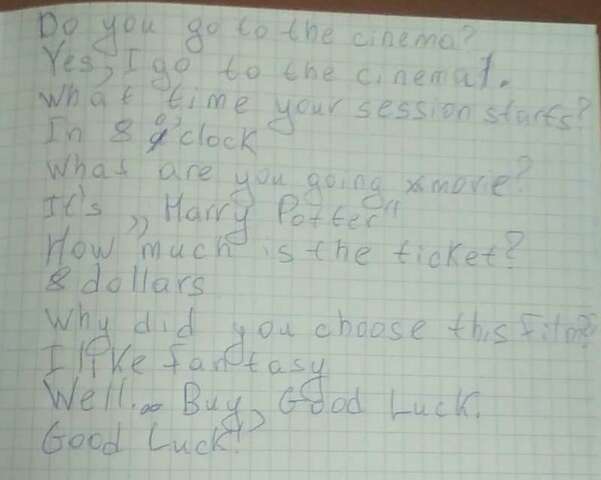 Do you go to the cinema?
Yes, I go to the cinema1.
What time your session starts?
In 8 o'clock
What are you going movie?
It's „Harry Potter"
How much is the ticket?
8 dollars
Why did you choose this film?
I like fantasy
Well... Buy, Good Luck.
Good Luck!